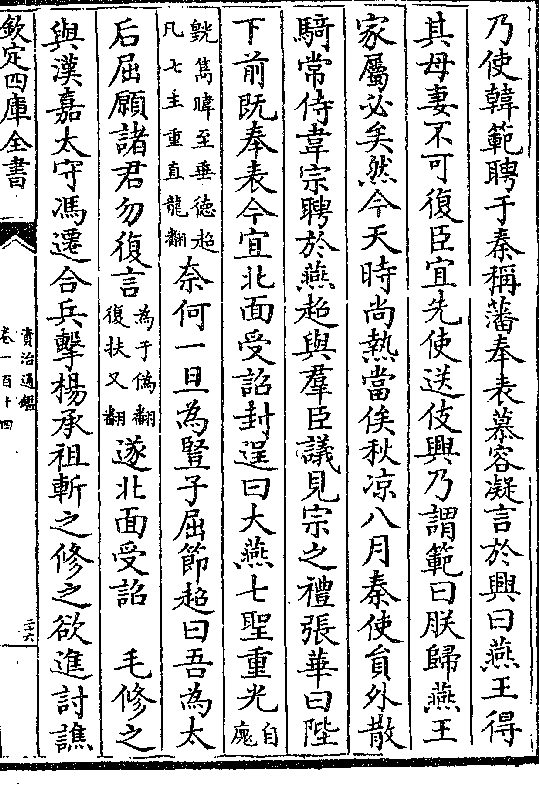 乃使韓範聘于秦稱藩奉表慕容凝言於興曰燕王得
其母妻不可復臣宜先使送伎興乃謂範曰朕歸燕王
家屬必矣然今天時尚熱當俟秋凉八月秦使員外散
騎常侍韋宗聘於燕超與羣臣議見宗之禮張華曰陛
下前既奉表今宜北面受詔封逞曰大燕七聖重光自廆
皝儁暐至垂德超凡七主重直龍翻奈何一旦為豎子屈節超曰吾為太
后屈願諸君勿復言為于偽翻復扶又翻遂北面受詔　毛修之
與漢嘉太守馮遷合兵擊楊承祖斬之修之欲進討譙
欽定四庫全書
資治通鑑
卷一百十四
三六